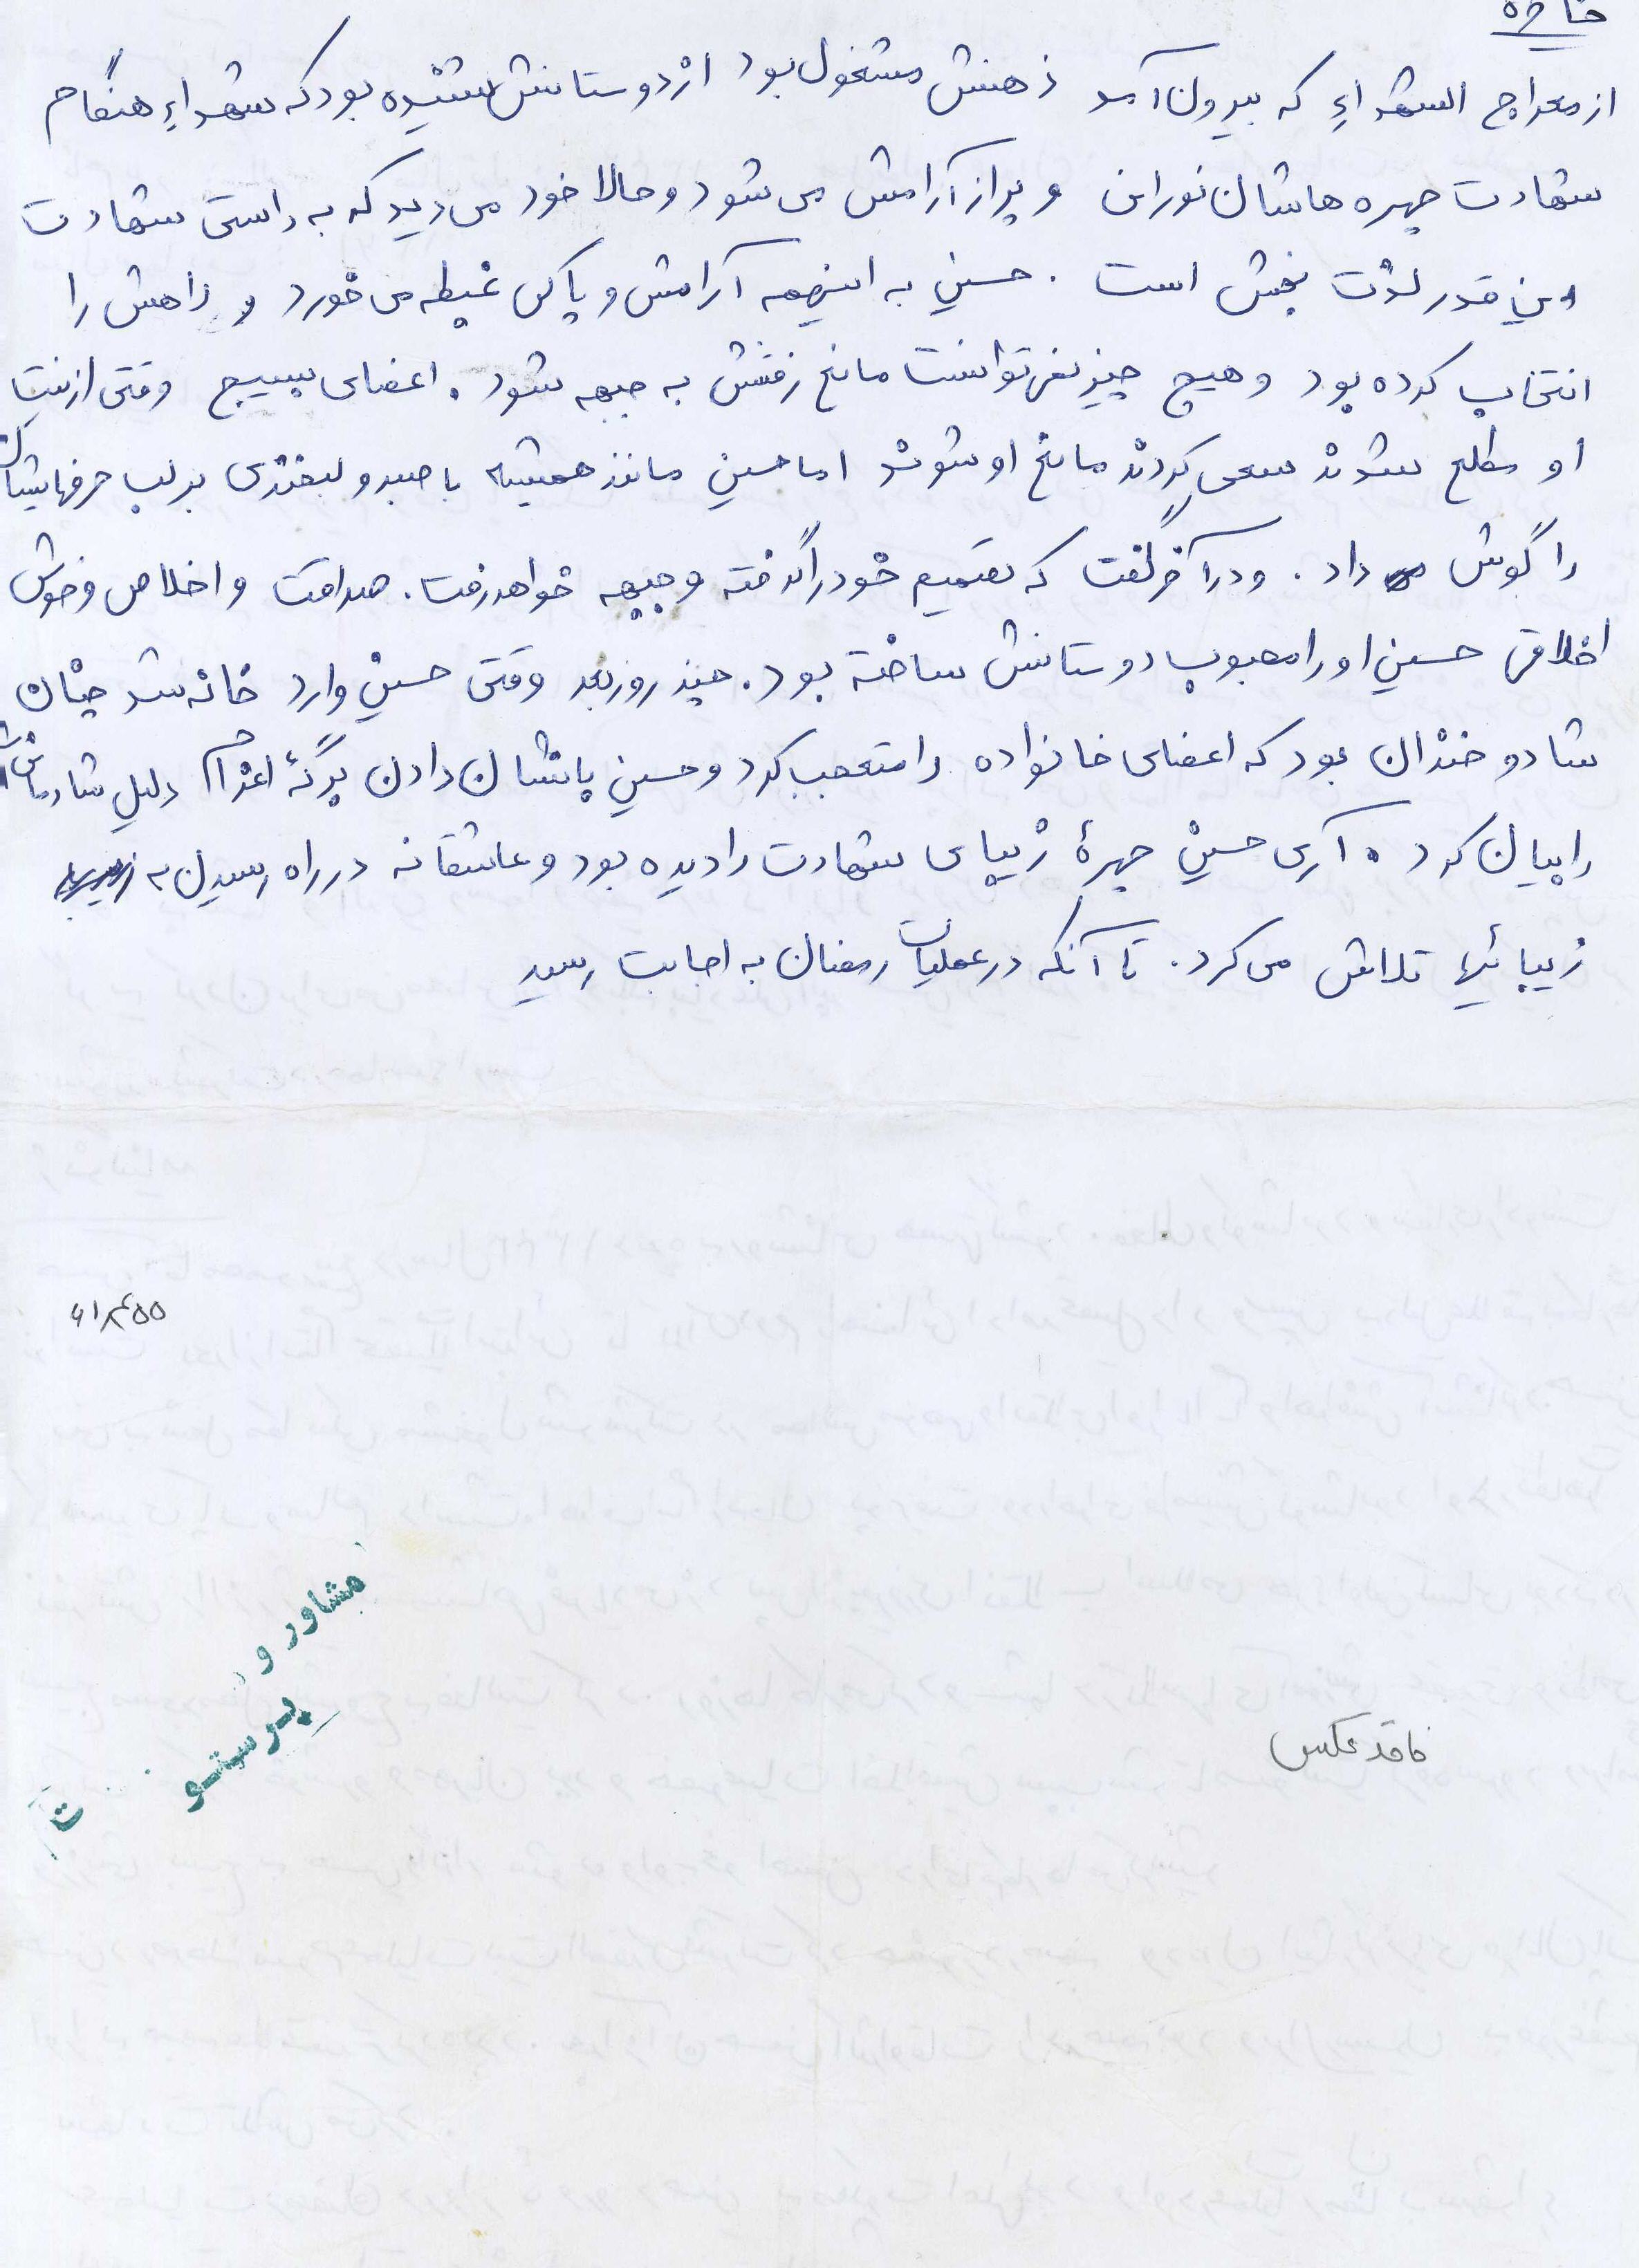 خاطره
از معراج الشهداء که بیرون آمد ذهنش مشغول بود از دوستانش شنیده بود که شهداء هنگام
شهادت چهره هاشان نورانی و پر از آرامش می شود و حالا خود می دید که به راستی شهادت
این قدر لذت بخش است . حسین به اینهمه آرامش و پاکی غبطه می خورد و راهش را
انتخاب کرده بود و هیچ چیز نمی توانست مانع رفتنش به جبهه شود . اعضای بسیج وقتی از نیت
او مطلع شدند سعی کردند مانع او شوند اما حسین مانند همیشه با صبر و لبخندی بر لب حرفهایشان
را گوش داد . و در آخر گفت که تصمیم خود را گرفته و جبهه خواهد رفت . صداقت و اخلاص و خوش
اخلاقی حسین او را محبوب دوستانش ساخته بود . چند روز بعد وقتی حسین وارد خانه شد چنان
شاد و خندان بود که اعضای خانواده را متعجب کرد و حسین با نشان دادن برگهٔ اعزام دلیل شادمانیش
را بیان کرد . آری حسین چهرهٔ زیبای شهادت را دیده بود و عاشقانه در راه رسیدن به
زیبائیها تلاش می کرد . تا آنکه در عملیات رمضان به اجابت رسید
مشاور و
پرستو
ت
فاقد عکس